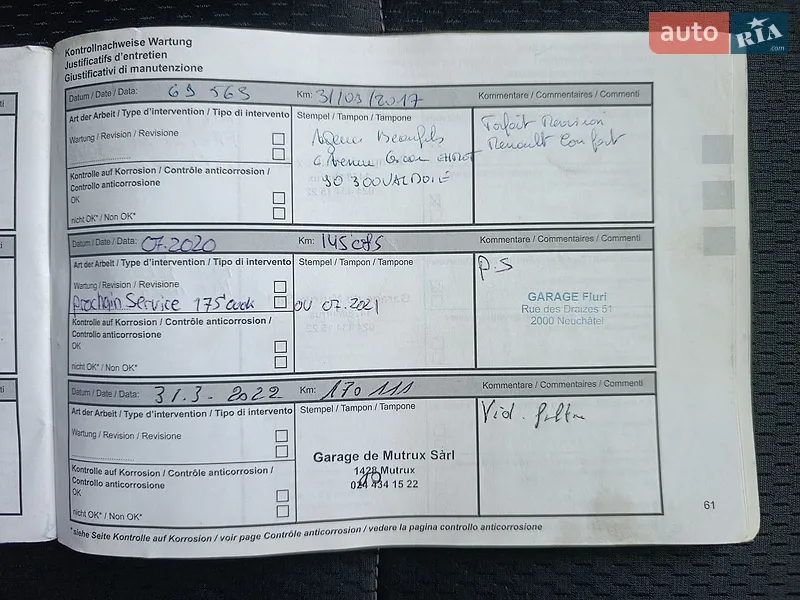 auto RIA .com
Kontrollnachweise Wartung
Justificatifs d'entretien
Giustificativi di manutenzione
Datum / Date / Data: 69 563 Km: 31/03/2017 Kommentare / Commentaires / Commenti
Art der Arbeit / Type d'intervention / Tipo di intervento Stempel / Tampon / Tampone Forfait Revision
Wartung / Revision / Revisione Renault Confort
6 Avenue
Kontrolle auf Korrosion / Contrôle anticorrosion / 90 300 VALDOIE
Controllo anticorrosione
OK
nicht OK* / Non OK*
Datum / Date / Data: 07.2020 Km: Kommentare / Commentaires / Commenti
Art der Arbeit / Type d'intervention / Tipo di intervento Stempel / Tampon / Tampone P.S
Wartung / Revision / Revisione GARAGE Fluri
Prochain Service OU 07.2021 Rue des Draizes 51
Kontrolle auf Korrosion / Contrôle anticorrosion / 2000 Neuchâtel
Controllo anticorrosione
OK
nicht OK* / Non OK*
Datum / Date / Data: 31.3-2022 Km: 170 111 Kommentare / Commentaires / Commenti
Art der Arbeit / Type d'intervention / Tipo di intervento Stempel / Tampon / Tampone Vid. filtre
Wartung / Revision / Revisione Garage de Mutrux Sàrl
1428 Mutrux
Kontrolle auf Korrosion / Contrôle anticorrosion / 024 434 15 22
Controllo anticorrosione
OK
nicht OK* / Non OK*
*siehe Seite Kontrolle auf Korrosion / voir page Contrôle anticorrosion / vedere la pagina controllo anticorrosione
61